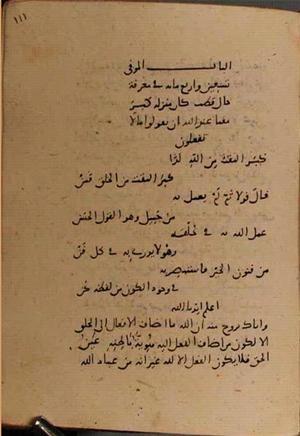 ١١١
الباب الموفى
تسعين واربع مائه في معرفة
حال قطب كان منزله كبر
مقتا عند الله ان تقولوا مالا
تفعلون
كبر المقت من الله لذا
كبر المقت من الخلق فمن
قال قولا ثم لم يعمل به
من جميل وهو القول الحسن
عمل الله به في خلقه
وهو لا يدري به في كل فن
من فنون الخير فاستبصر به
في وجود الكون من لفظة كن
اعلم ايدنا الله
واياك بروح منه ان الله ما اضاف الافعال الى الخلق
الا لكون من اضاف الفعل اليه هويته باطنه عين
الحق فلا يكون الفعل الا لله غير انه من عباد الله